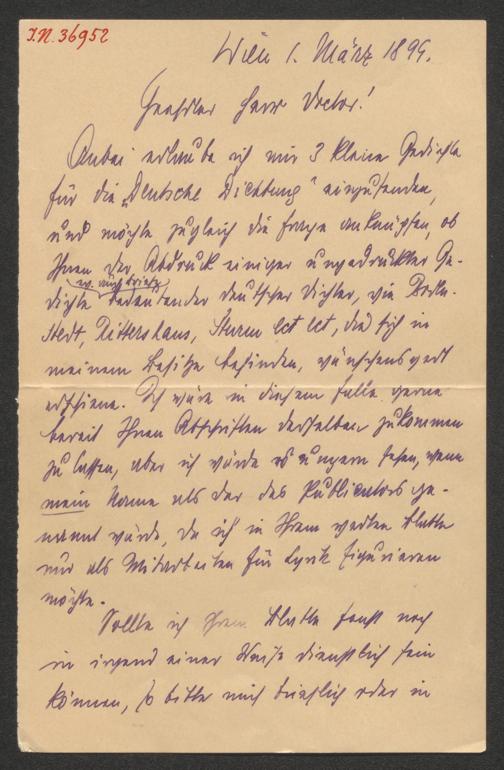 I.N. 36952
Wien 1. März 1899.
Geehrter Herr Doctor!
Anbei erlaube ich mir 3 kleine Gedichte
für die „Deutsche Dichtung" einzusenden,
und möchte zugleich die Frage anknüpfen, ob
Ihnen der Abdruck einiger ungedruckter Ge-
ev. auch Briefe
dichte bedeutender deutscher Dichter, wie Boden-
stedt, Rittershaus, Sturm ect ect, die sich in
meinem Besitze befinden, wünschenswert
erschiene. Ich wäre in diesem Falle gerne
bereit Ihnen Abschriften derselben zukommen
zu lassen, aber ich würde es ungern sehen, wenn
mein Name als der des Publicators ge-
nannt würde, da ich in Ihrem werten Blatte
nur als Mitarbeiter für Lyrik figurieren
möchte.
Sollte ich Ihrem Blatte sonst noch
in irgend einer Weise dienstlich sein
können, so bitte mich brieflich oder in